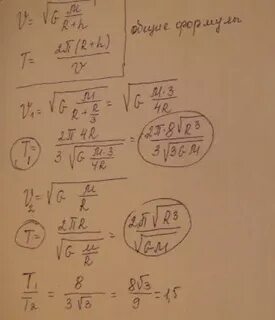 V = √(G M/(R+h))
общие формулы
T = 2π(R+h)/V
V₁ = √(G M/(R + R/3)) = √(G M·3/4R)
T₁ = 2π4R/(3√(G M·3/4R)) = 2π·8√R³/(3√3GM)
V₂ = √(G M/R)
T = 2πR/√(G M/R) = 2π√R³/√GM
T₁/T₂ = 8/3√3 = 8√3/9 = 1,5